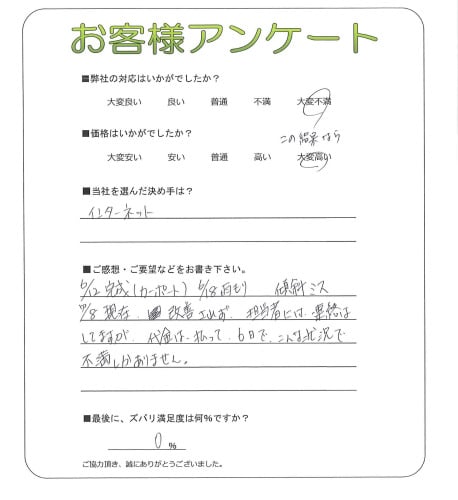 お客様アンケート
■弊社の対応はいかがでしたか？
大変良い 良い 普通 不満 大変不満
■価格はいかがでしたか？
この結果なら
大変安い 安い 普通 高い 大変高い
■当社を選んだ決め手は？
インターネット
■ご感想・ご要望などをお書き下さい。
6/12 完成(カーポート) 6/18 雨もり 傾斜ミス
10/8 現在、改善されず、担当者には、連絡は
してますが、代金は、払って、6日で、こんな状況で
不満しかありません。
■最後に、ズバリ満足度は何%ですか？
0 %
ご協力頂き、誠にありがとうございました。